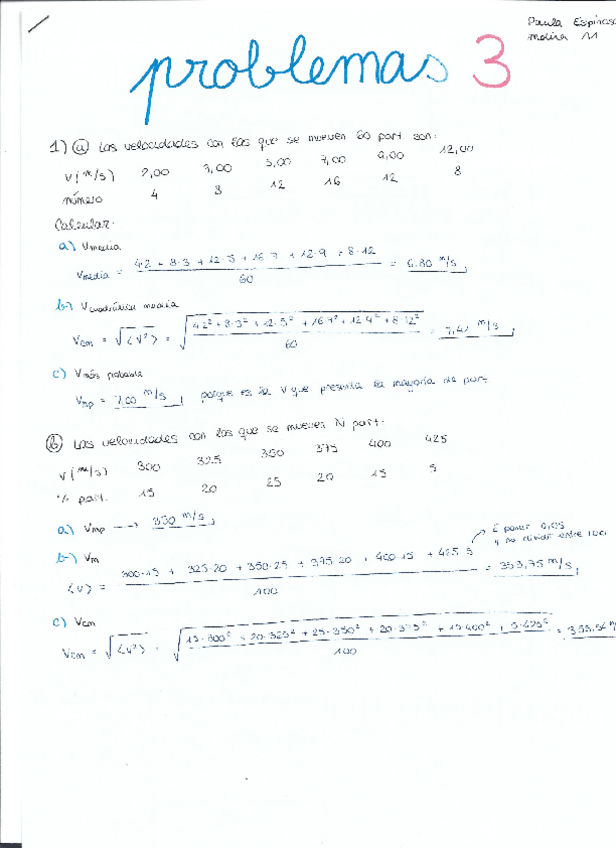 Paula Espinosa
Molina M
problemas 3
1) a) Las velocidades con las que se mueven 60 part. son:
v (m/s) 2,00 3,00 5,00 7,00 9,00 12,00
número 4 8 12 16 12 8
Calcular:
a) Vmedia
Vmedia = 4·2 + 8·3 + 12·5 + 16·7 + 12·9 + 8·12 / 60 = 6.80 m/s
b) Vcuadrática media
Vcm = √⟨v²⟩ = √ 4·2² + 8·3² + 12·5² + 16·7² + 12·9² + 8·12² / 60 = 7,41 m/s
c) Vmás probable
Vmp = 7,00 m/s porque es la V que presenta la mayoría de part.
b) Las velocidades con las que se mueven N part:
v (m/s) 300 325 350 375 400 425
% part. 15 20 25 20 15 5
a) Vmp → 350 m/s
ó poner 0,05
y no dividir entre 100
b) Vm
⟨v⟩ = 300·15 + 325·20 + 350·25 + 375·20 + 400·15 + 425·5 / 100 = 353,75 m/s
c) Vcm
Vcm = √⟨v²⟩ = √ 15·300² + 20·325² + 25·350² + 20·375² + 15·400² + 5·425² / 100 =